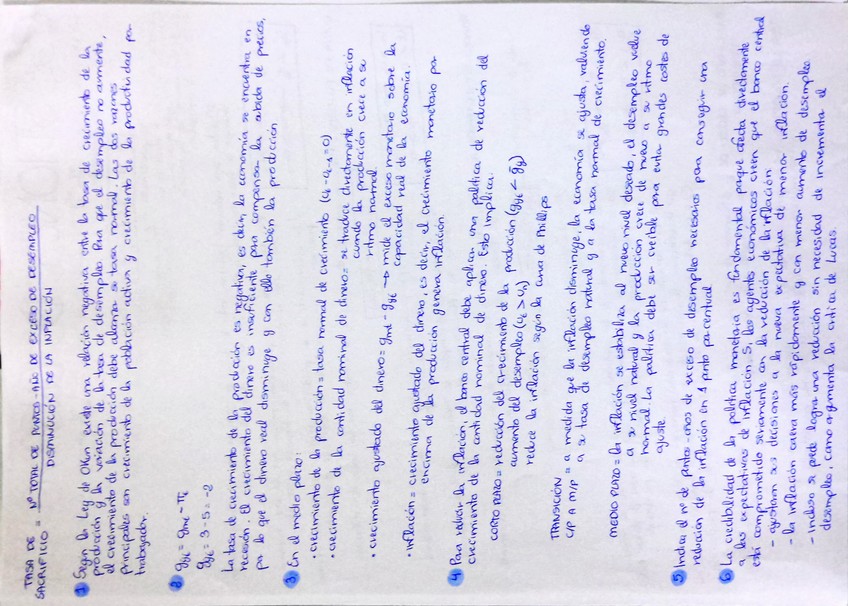 TASA DE SACRIFICIO = Nº TOTAL DE PUNTOS-AÑO DE EXCESO DE DESEMPLEO
DISMINUCIÓN DE LA INFLACIÓN
1 Según la Ley de Okun existe una relación negativa entre la tasa de crecimiento de la
producción y la variación de la tasa de desempleo. Para que el desempleo no aumente,
el crecimiento de la producción debe alcanzar su tasa normal. Las dos razones
principales son crecimiento de la población activa y crecimiento de la productividad por
trabajador.
2 gyt = gmt - πt
gyt = 3 - 5 = -2
La tasa de crecimiento de la producción es negativa, es decir, la economía se encuentra en
recesión. El crecimiento del dinero es insuficiente para compensar la subida de precios,
por lo que el dinero real disminuye y con ello también la producción
3 En el medio plazo:
· crecimiento de la producción = tasa normal de crecimiento (ut - ut-1 = 0)
· crecimiento de la cantidad nominal de dinero = se traduce directamente en inflación
cuando la producción crece a su
ritmo normal.
· crecimiento ajustado del dinero = gmt - gyt → mide el exceso monetario sobre la
capacidad real de la economía.
· inflación = crecimiento ajustado del dinero, es decir, el crecimiento monetario por
encima de la producción genera inflación.
4 Para reducir la inflación, el banco central debe aplicar una política de reducción del
crecimiento de la cantidad nominal de dinero. Esto implica:
CORTO PLAZO = reducción del crecimiento de la producción (gyt < gy)
aumento del desempleo (ut > un)
reduce la inflación según la curva de Phillips
TRANSICIÓN
C/P A M/P = a medida que la inflación disminuye, la economía se ajusta, volviendo
a su tasa de desempleo natural y a la tasa normal de crecimiento.
MEDIO PLAZO = la inflación se estabiliza al nuevo nivel deseado, el desempleo vuelve
a su nivel natural y la producción crece de nuevo a su ritmo
normal. La política debe ser creíble para evitar grandes costes de
ajuste.
5 Indica el nº de puntos-años de exceso de desempleo necesarios para conseguir una
reducción de la inflación en 1 punto porcentual.
6 La credibilidad de la política monetaria es fundamental porque afecta directamente
a las expectativas de inflación. Si los agentes económicos creen que el banco central
está comprometido seriamente con la reducción de la inflación
- ajustan sus decisiones a la nueva expectativa de menor inflación.
- la inflación caerá más rápidamente y con menor aumento de desempleo
- incluso se puede lograr una reducción sin necesidad de incrementar el
desempleo, como argumenta la crítica de Lucas.